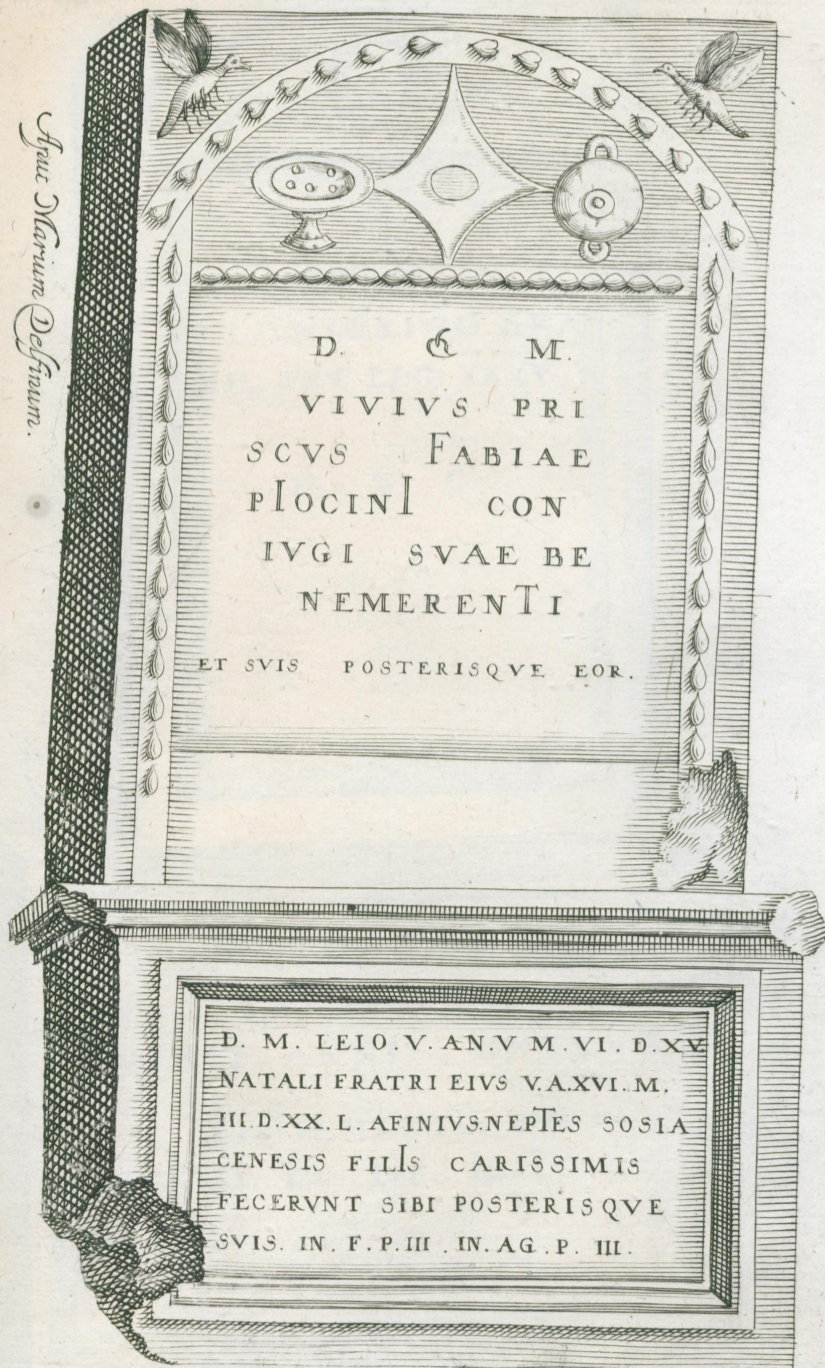 Aput Marium Delfinum.
D. M.
VIVIVS PRI
SCVS FABIAE
PIOCINI CON
IVGI SVAE BE
NEMERENTI
ET SVIS POSTERISQVE EOR.
D. M. LEIO. V. AN. V M. VI. D. XV
NATALI FRATRI EIVS V. A. XVI. M.
III. D. XX. L. AFINIVS. NEPTES SOSIA
CENESIS FILIS CARISSIMIS
FECERVNT SIBI POSTERISQVE
SVIS. IN. F. P. III. IN. AG. P. III.